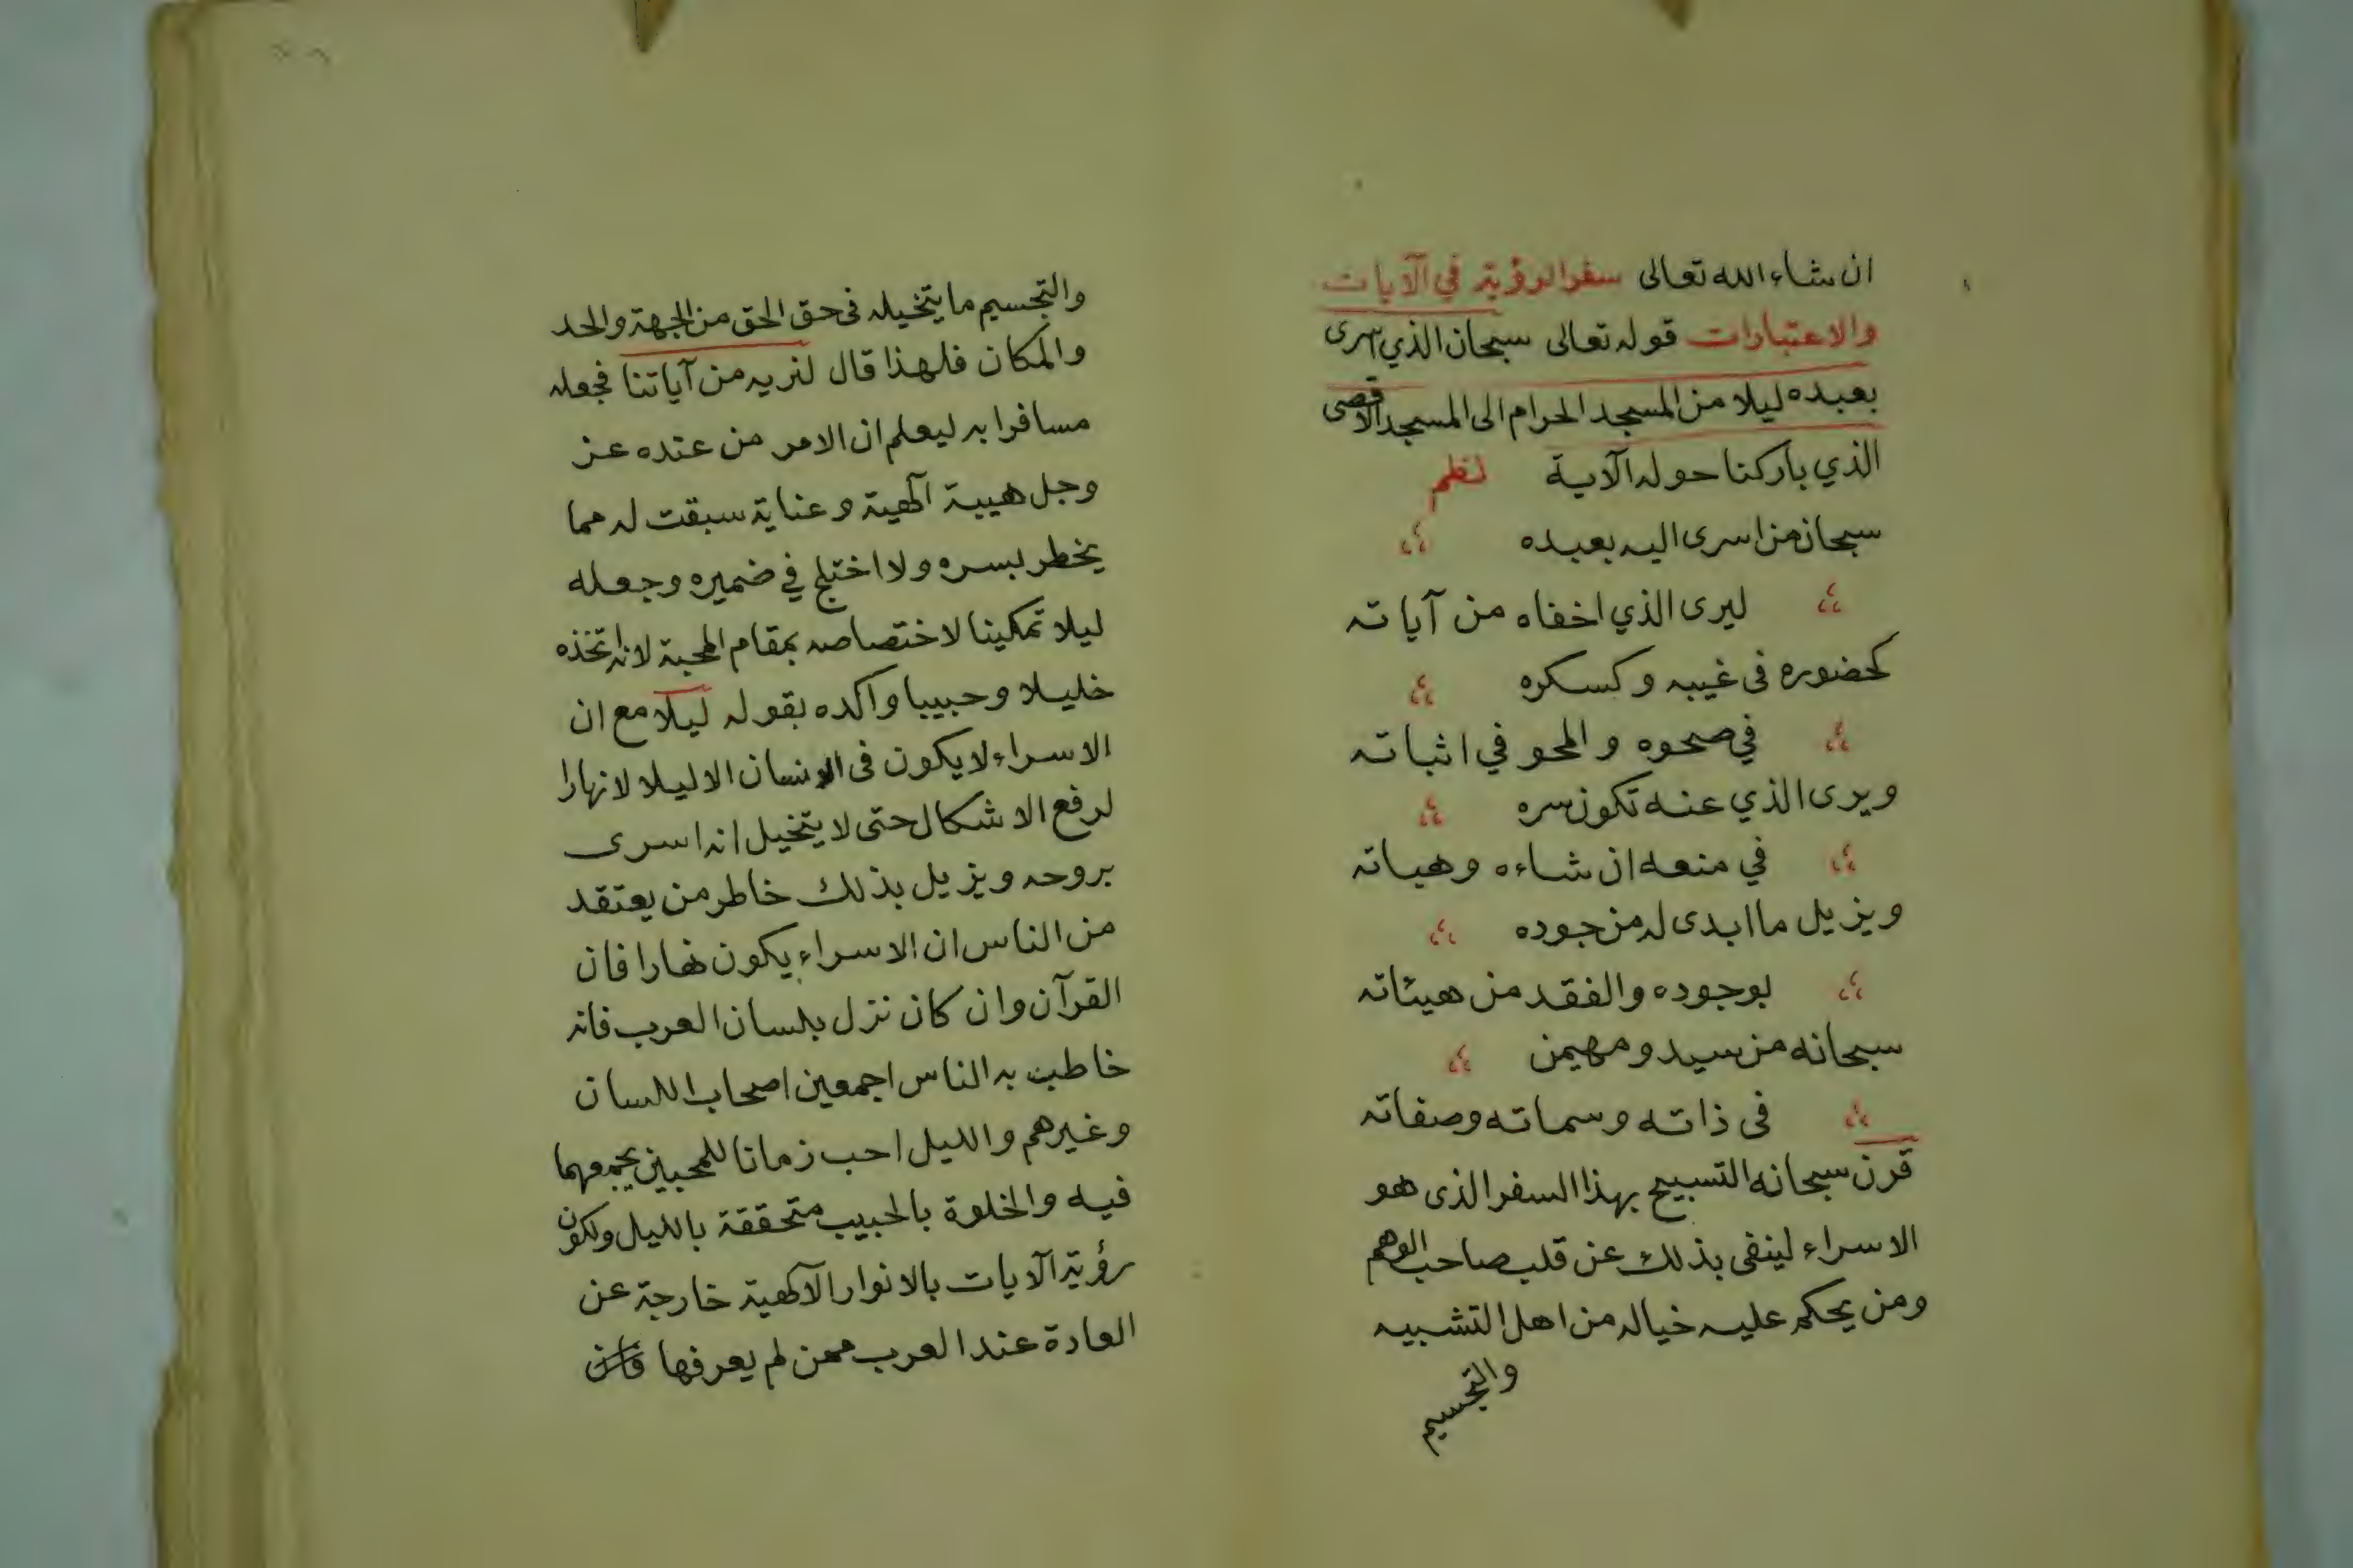 ان شاء الله تعالى سفر الرؤية في الآيات
والاعتبارات قوله تعالى سبحان الذي اسرى
بعبده ليلا من المسجد الحرام الى المسجد الاقصى
الذي باركنا حوله الآية نظم
سبحان من اسرى اليه بعبده
ليرى الذي اخفاه من آياته
كحضوره في غيبه وكسكره
في صحوه والمحو في اثباته
ويرى الذي عنه تكون سره
في منعه ان شاءه وهباته
ويزيل ما ابدى له من جوده
بوجوده والفقد من هيئاته
سبحانه من سيد ومهيمن
فى ذاته وسماته وصفاته
قرن سبحانه التسبيح بهذا السفر الذى هو
الاسراء لينفى بذلك عن قلب صاحب الوهم
ومن يحكم عليه خياله من اهل التشبيه
والتجسيم
والتجسيم ما يتخيله فى حق الحق من الجهة والحد
والمكان فلهذا قال لنريه من آياتنا فجعله
مسافرا به ليعلم ان الامر من عنده عز
وجل هيبة آلهية وعناية سبقت له مما
يخطر بسره ولا اختلج في ضميره وجعله
ليلا تمكينا لاختصاصه بمقام المحبة لانه اتخذه
خليلا وحبيبا واكده بقوله ليلا مع ان
الاسراء لا يكون فى الانسان الا ليلا لا نهارا
لرفع الاشكال حتى لا يتخيل انه اسرى
بروحه ويزيل بذلك خاطر من يعتقد
من الناس ان الاسراء يكون نهارا فان
القرآن وان كان نزل بلسان العرب فانه
خاطب به الناس اجمعين اصحاب اللسان
وغيرهم والليل احب زمانا للمحبين يجمعهما
فيه والخلوة بالحبيب متحققة بالليل ولكون
رؤية الآيات بالانوار الآلهية خارجة عن
العادة عند العرب ممن لم يعرفها